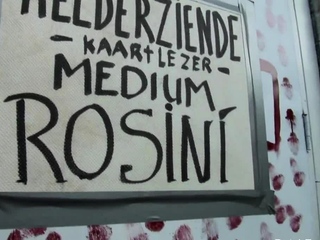 HELDERZIENDE
- KAARTLEZER -
MEDIUM
ROSINÍ